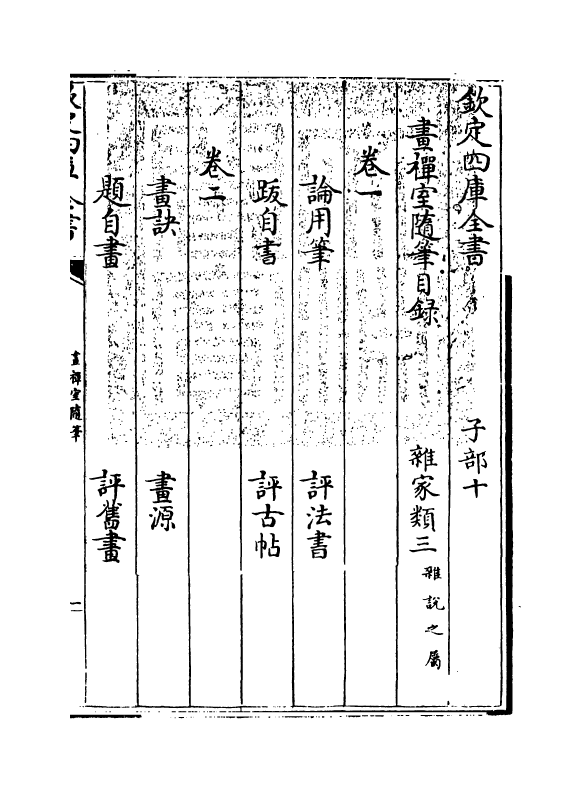 欽定四庫全書 子部十
畫禪室隨筆目録 雜家類三雜說之屬
卷一
論用筆 評法書
跋自書 評古帖
卷二
畫訣 畫源
題自畫 評舊畫
畫禪室隨筆 一